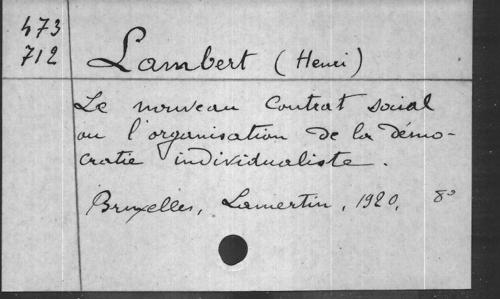 473
712
Lambert (Henri)
Le nouveau Contrat social
ou l'organisation de la démo-
cratie individualiste.
Bruxelles, Lamertin, 1920, 8°